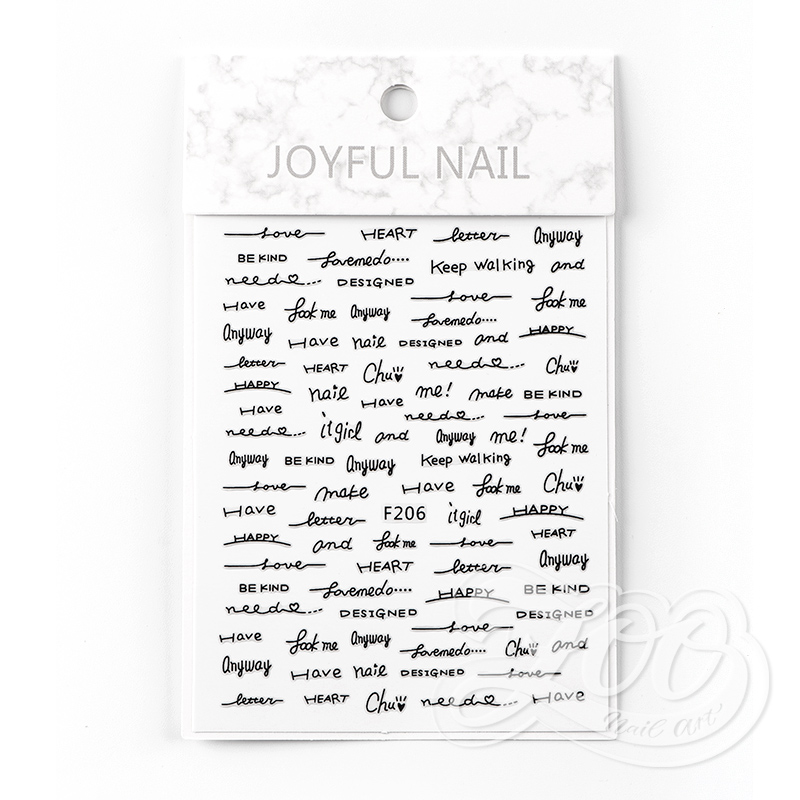 JOYFUL NAIL
Love HEART letter Anyway
BE KIND Lovemedo.... Keep walking and
need... DESIGNED
Have Look me Anyway Love Look me
Anyway Have nail DESIGNED Lovemedo.... and HAPPY
letter HEART Chu need... Chu
HAPPY nail Have me! make BE KIND
Have need... Love
need... it girl and Anyway me! Look me
Anyway BE KIND Anyway Keep walking
Love make Have Look me Chu
Have letter F206 it girl HAPPY
HAPPY and Look me Love HEART
Love HEART letter Anyway
BE KIND Lovemedo.... HAPPY BE KIND
need... DESIGNED Love DESIGNED
Have Look me Anyway Lovemedo.... Chu and
Anyway Have nail DESIGNED Love
letter HEART Chu need... Have
ZOO
Nail Art